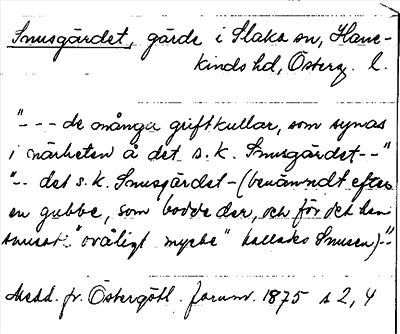 Snusgärdet, gärde i Slaka sn, Hane-
kinds hd, Österg. l.
"--- de många griftkullar, som synas
i närheten å det s.k. Snusgärdet--"
"-- det s.k. Snusgärdet-(benämndt efter
en gubbe, som bodde der, och för det han
snusat "ovåligt mycke" kallades Snusen)-"
Medd. fr. Östergötl. fornm. 1875 s 2, 4